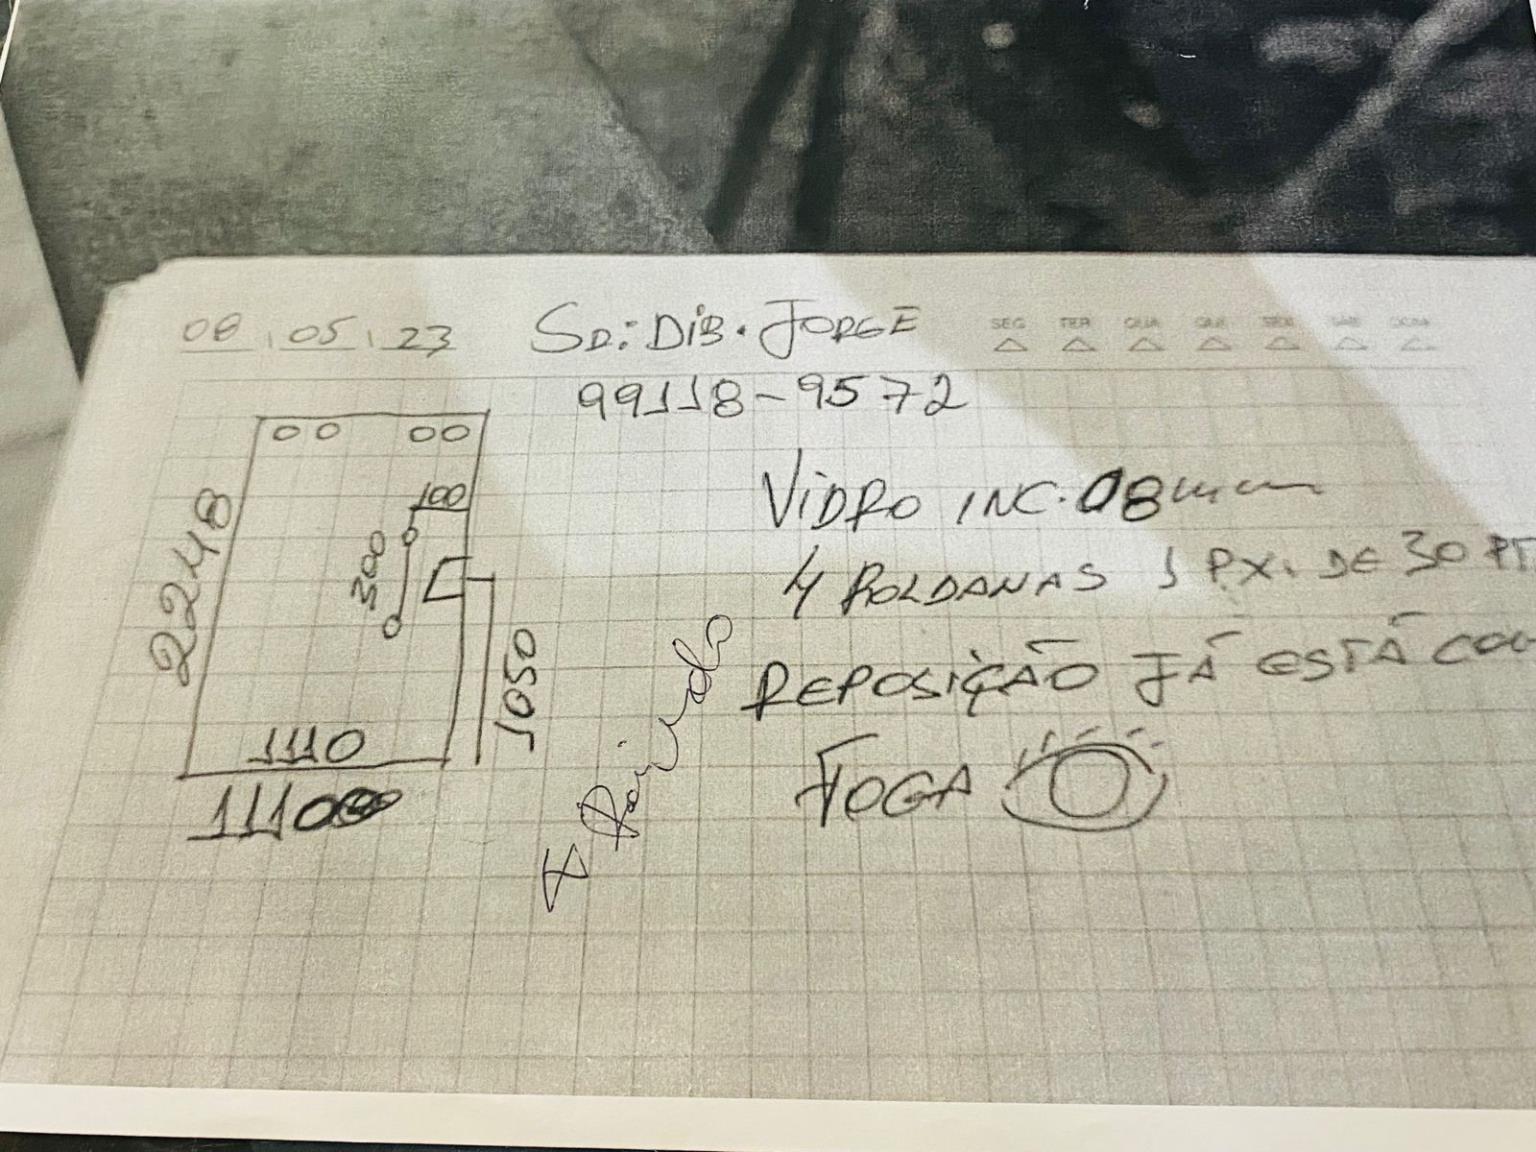 08 05 23
SR: DIB. JORGE
SEG TER QUA QUI SEX SAB DOM
99118-9572
VIDRO INC. 08mm
100
300
2248
4 ROLDANAS 1 PX. DE 30
REPOSIÇÃO JÁ ESTÁ
1050
1110
1110